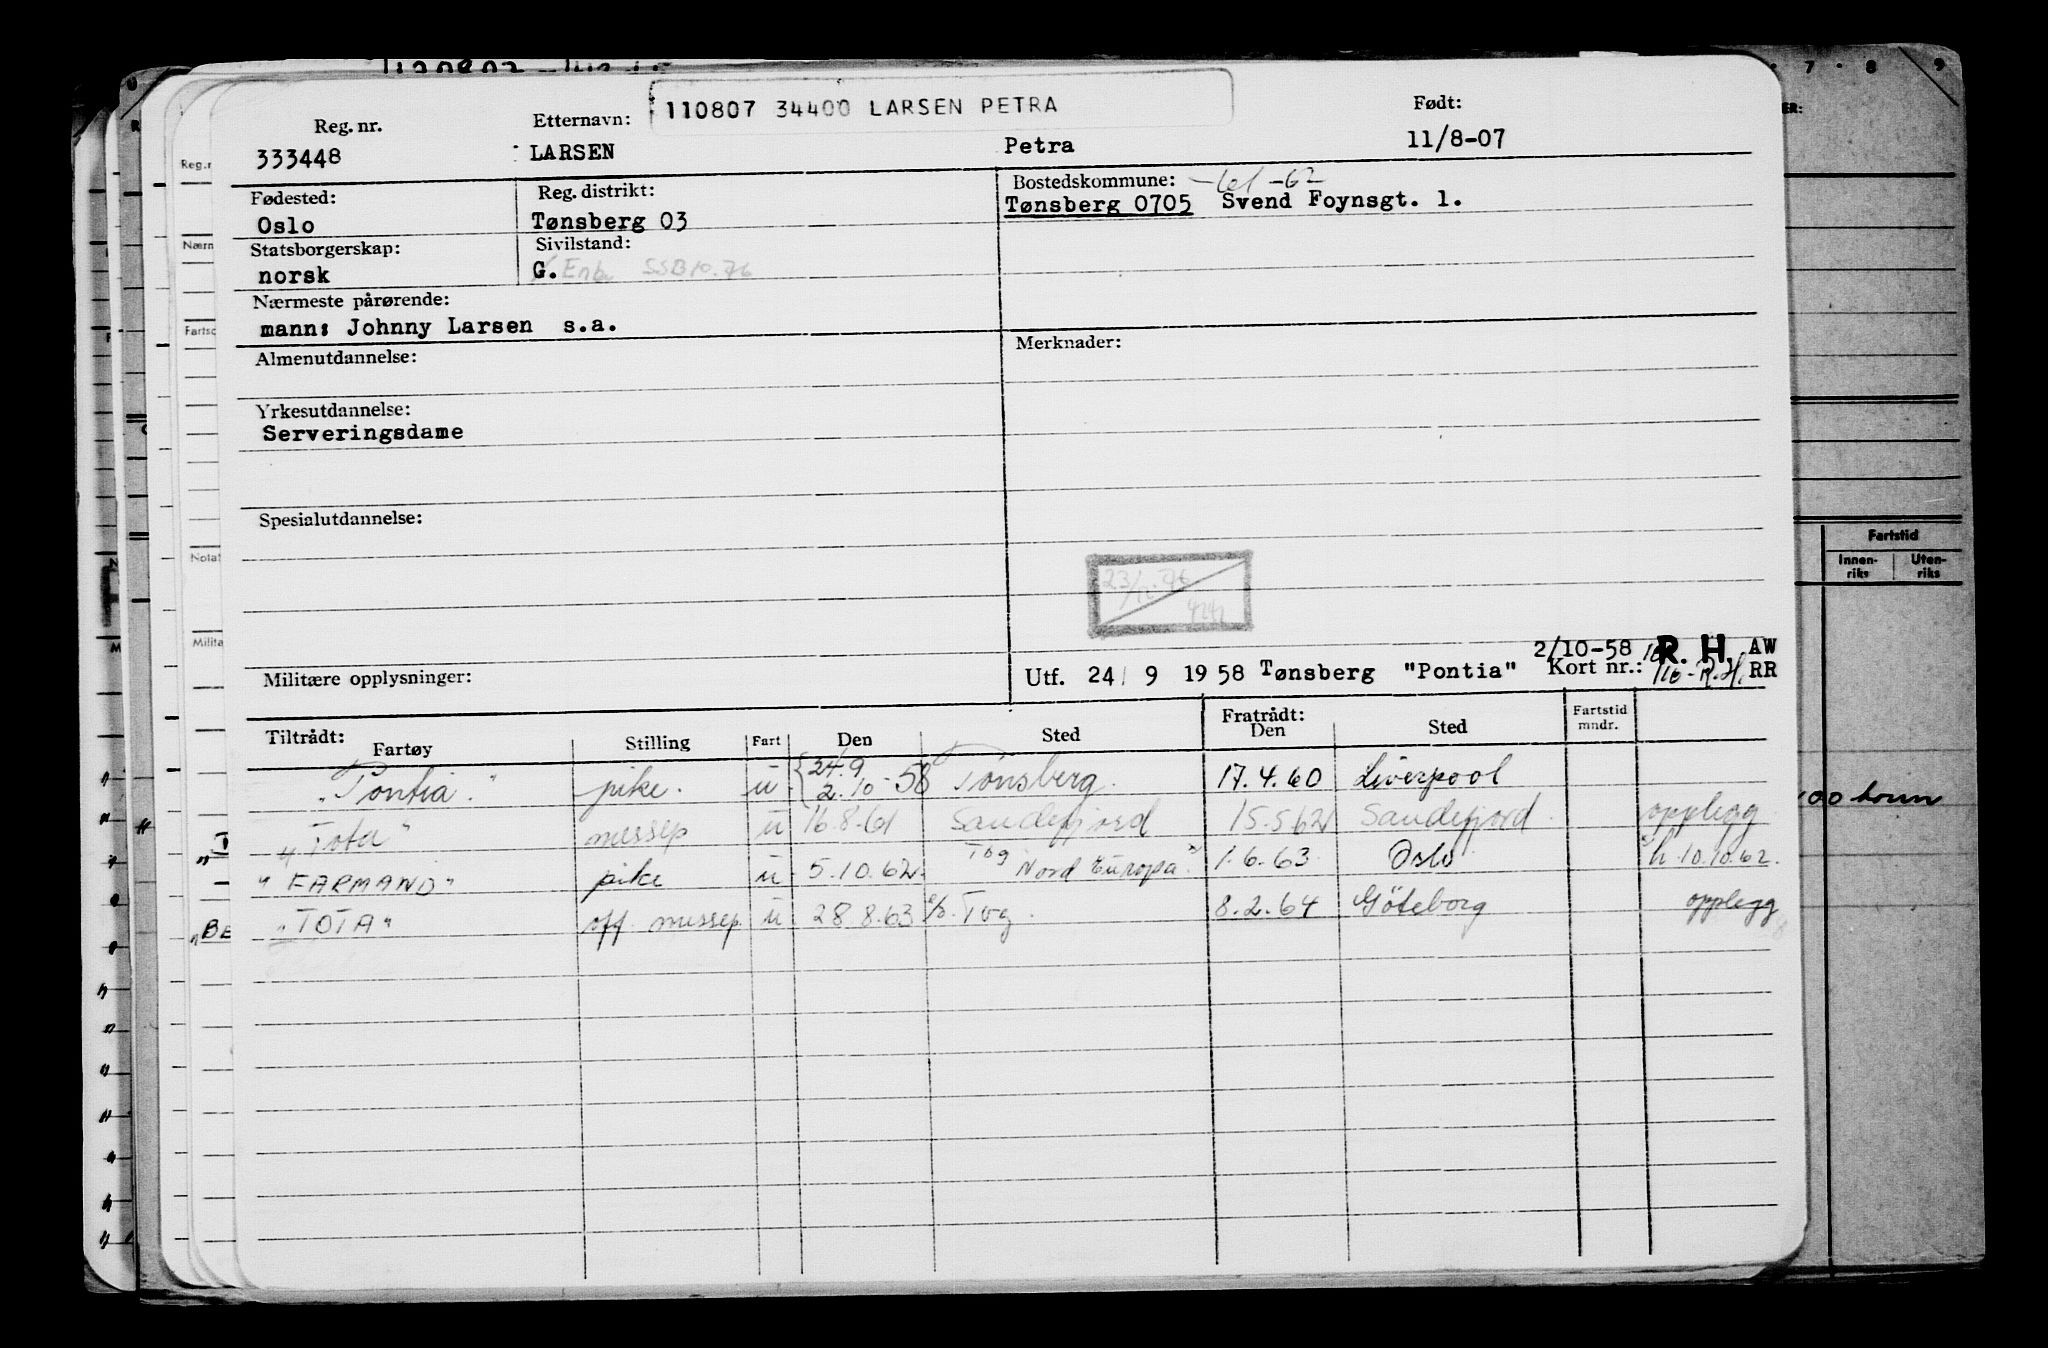 110807 34400 LARSEN PETRA
Reg. nr. Etternavn: Født:
333448 LARSEN Petra 11/8-07
Fødested: Reg. distrikt: Bostedskommune: -61-62
Oslo Tønsberg 03 Tønsberg 0705 Svend Foynsgt. 1.
Statsborgerskap: Sivilstand:
norsk G. Enke SSB 10.76
Nærmeste pårørende:
mann: Johnny Larsen s.a.
Almenutdannelse: Merknader:
Yrkesutdannelse:
Serveringsdame
Spesialutdannelse:
2/10-58 R. H. AW
Militære opplysninger: Utf. 24/ 9 1958 Tønsberg "Pontia" Kort nr.: R.H. RR
Tiltrådt: Fratrådt:
Fartøy Stilling Fart Den Sted Den Sted Fartstid mndr.
"Pontia" pike. u. 24.9 2.10-58 Tønsberg. 17.4.60 Liverpool
"Tota" messep u 16.8.61 Sandefjord 15.5.62 Sandefjord opplegg
"FARMAND" pike u. 5.10.62. Tog "Nord Europa" 1.6.63. Oslo h. 10.10.62.
"TOTA" off. messep. u. 28.8.63 Tog. 8.2.64 Göteborg opplegg
7 8 9
Fartstid
Innen-riks Uten-riks
Reg.n
Nærm
Fartsc
Notat
Milita
"BE